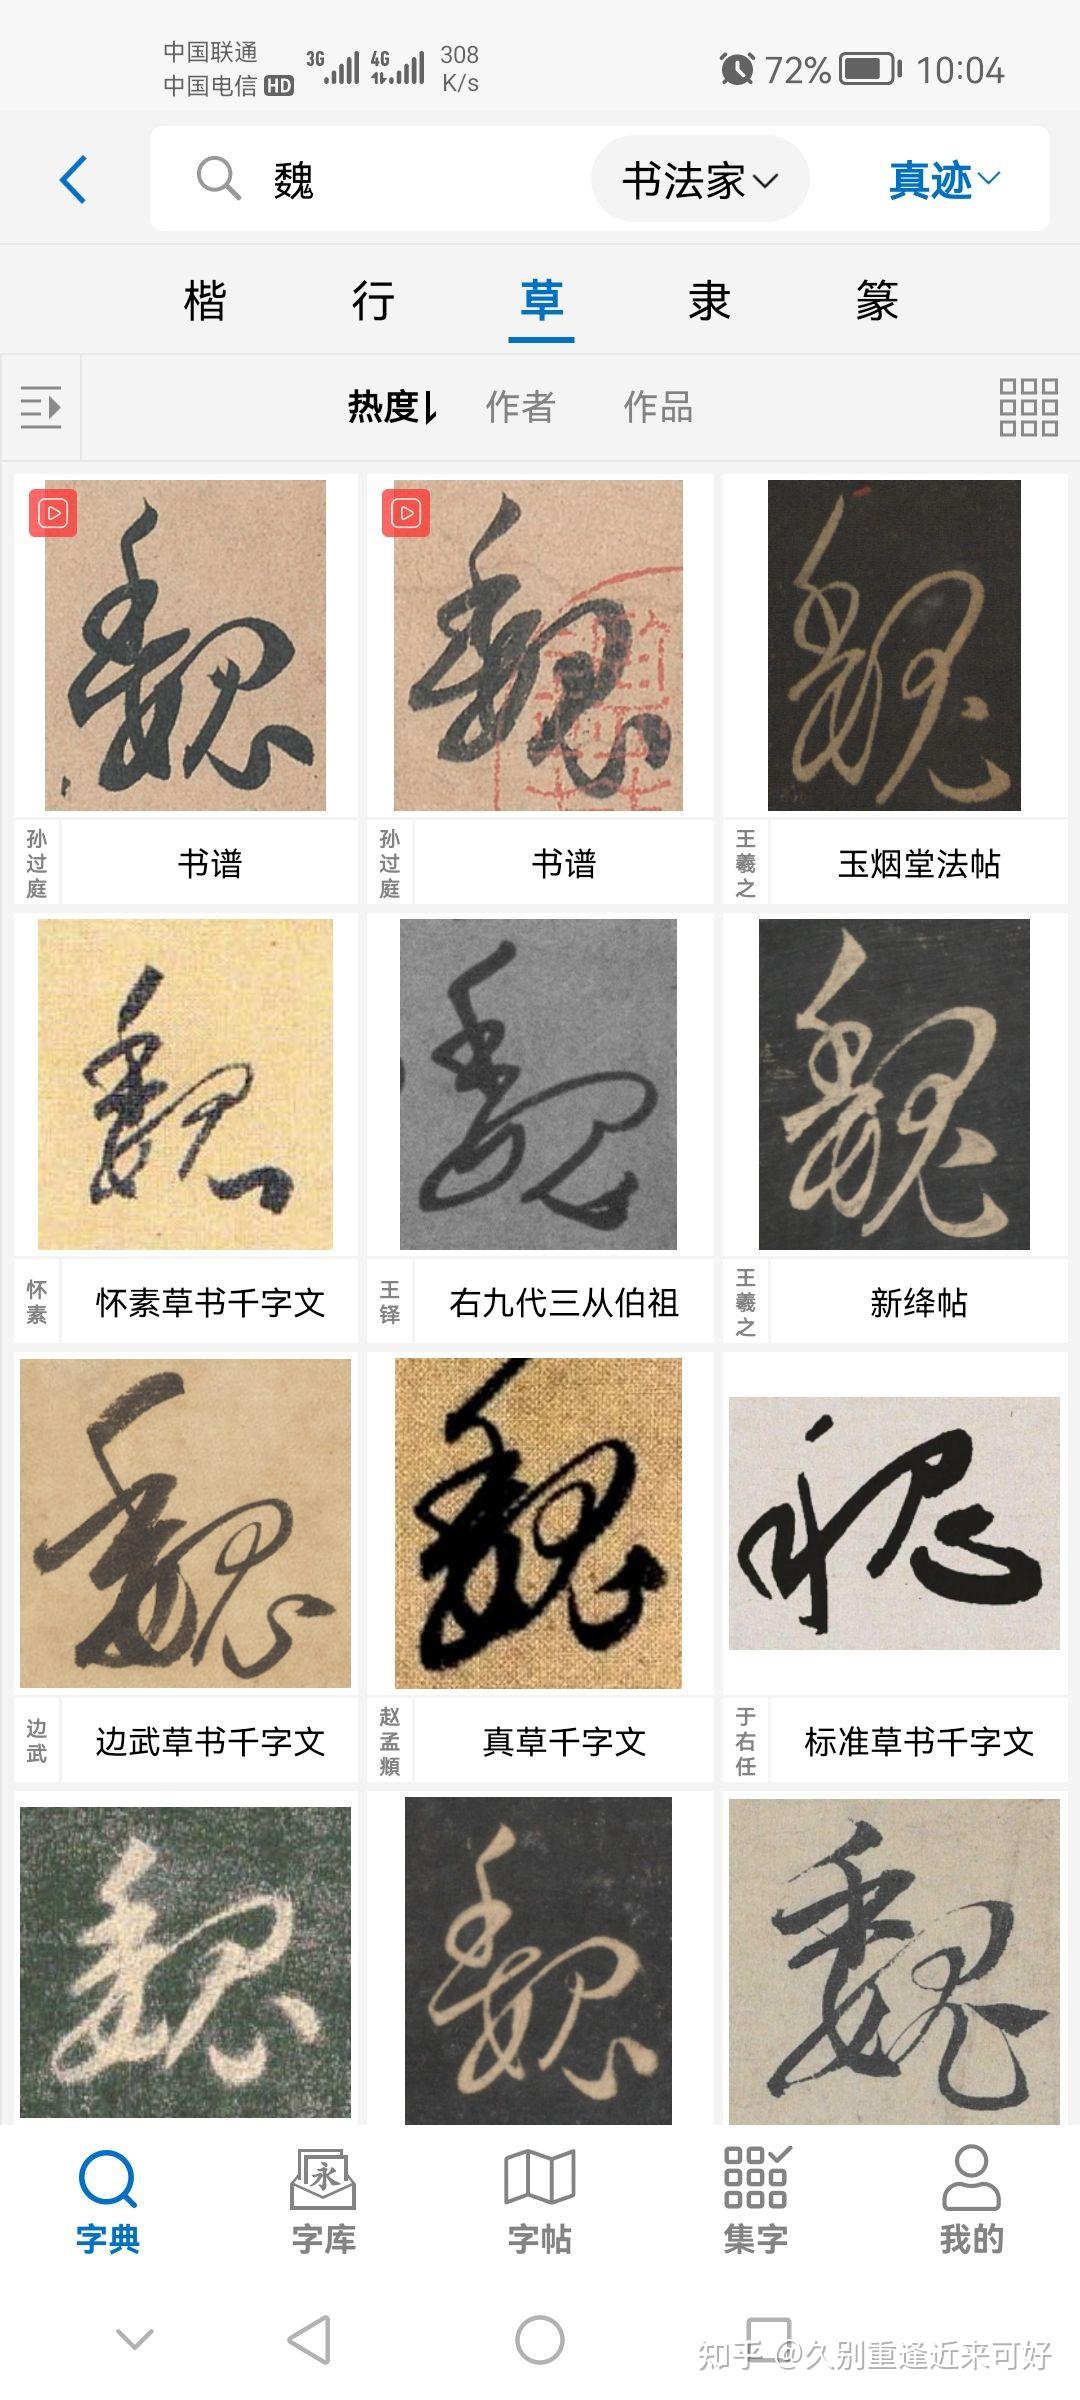 中国联通
中国电信 HD
3G
4G
308
K/s
72%
10:04
魏
书法家
真迹
楷 行 草 隶 篆
热度 作者 作品
魏 魏 魏
孙过庭 书谱
孙过庭 书谱
王羲之 玉烟堂法帖
魏 魏 魏
怀素 怀素草书千字文
王铎 右九代三从伯祖
王羲之 新绛帖
魏 魏 魏
边武 边武草书千字文
赵孟頫 真草千字文
于右任 标准草书千字文
魏 魏 魏
永
字典 字库 字帖 集字 我的
知乎 @久别重逢近来可好